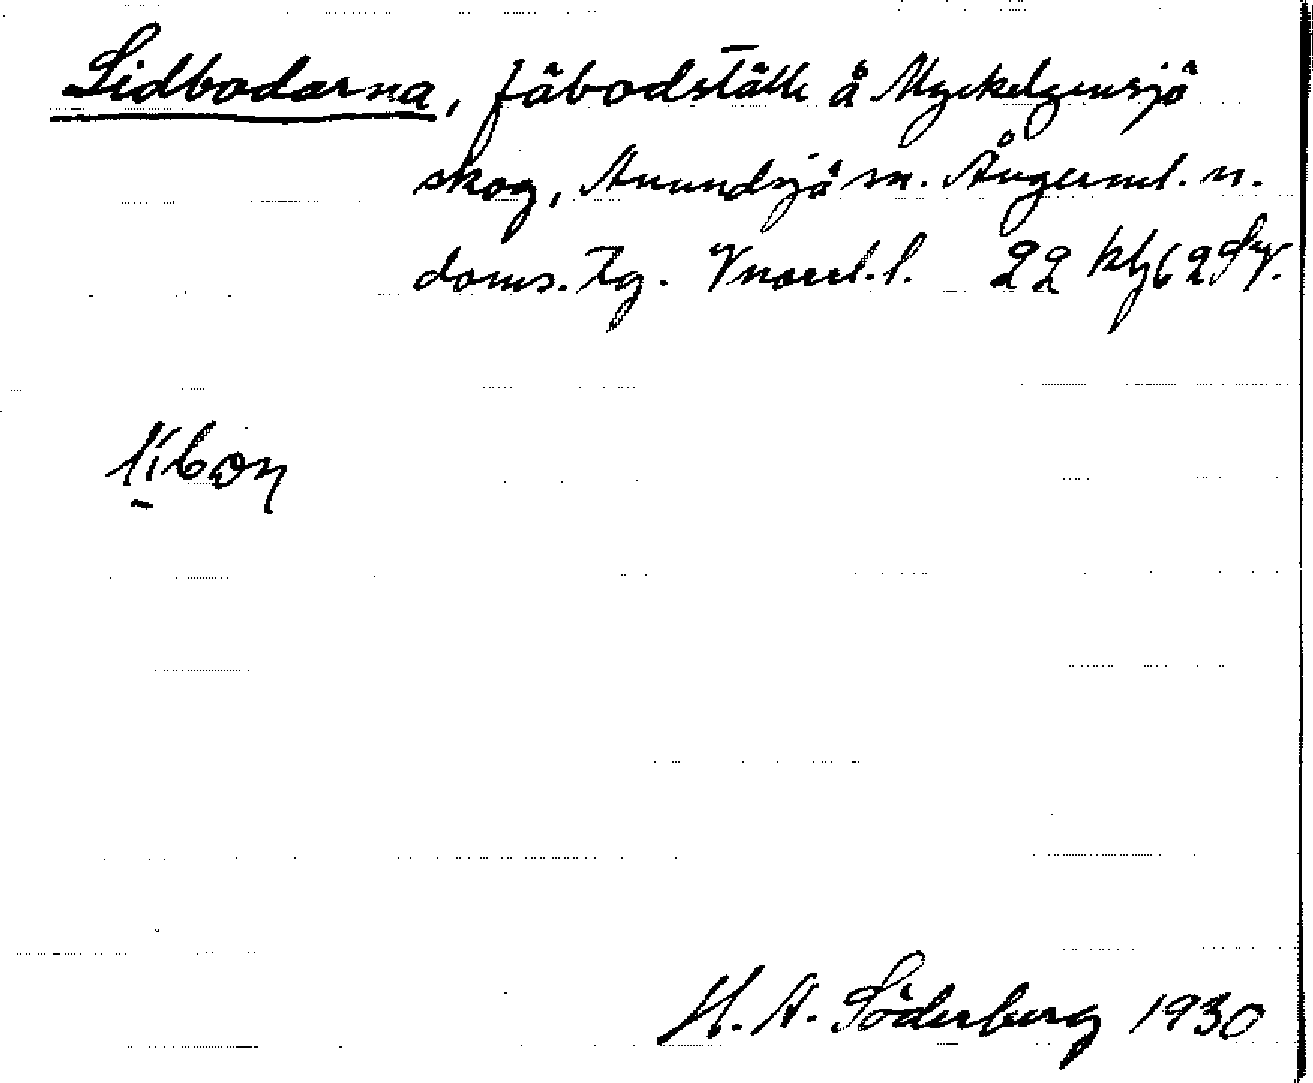 Lidbodarna, fäbodställe å Myckelgensjö
skog, Anundsjö sn. Ångerml. n.
doms. Tg. Vnorrl. l. 22 Klg 62
H. A. Söderberg 1930